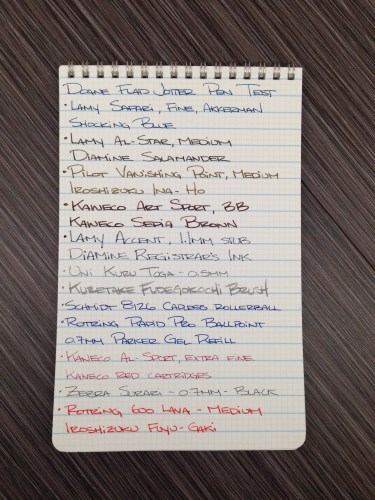 Doane Flap Jotter Pen Test
• Lamy Safari, Fine, Akkerman
Shocking Blue
• Lamy Al-Star, Medium
Diamine Salamander
• Pilot Vanishing Point, Medium
Iroshizuku Ina-Ho
• Kaweco Art Sport, BB
Kaweco Sepia Brown
• Lamy Accent, 1.1mm stub
Diamine Registrar's Ink
• Uni Kuru Toga - 0.5mm
• Kuretake Fudegokochi Brush
• Schmidt 8126 Capless Rollerball
• Rotring Rapid Pro Ballpoint
0.7mm Parker Gel Refill
• Kaweco Al-Sport, extra fine
Kaweco Red cartridges
• Zebra Surari - 0.7mm - Black
• Rotring 600 Lava - Medium
Iroshizuku Fuyu-Gaki